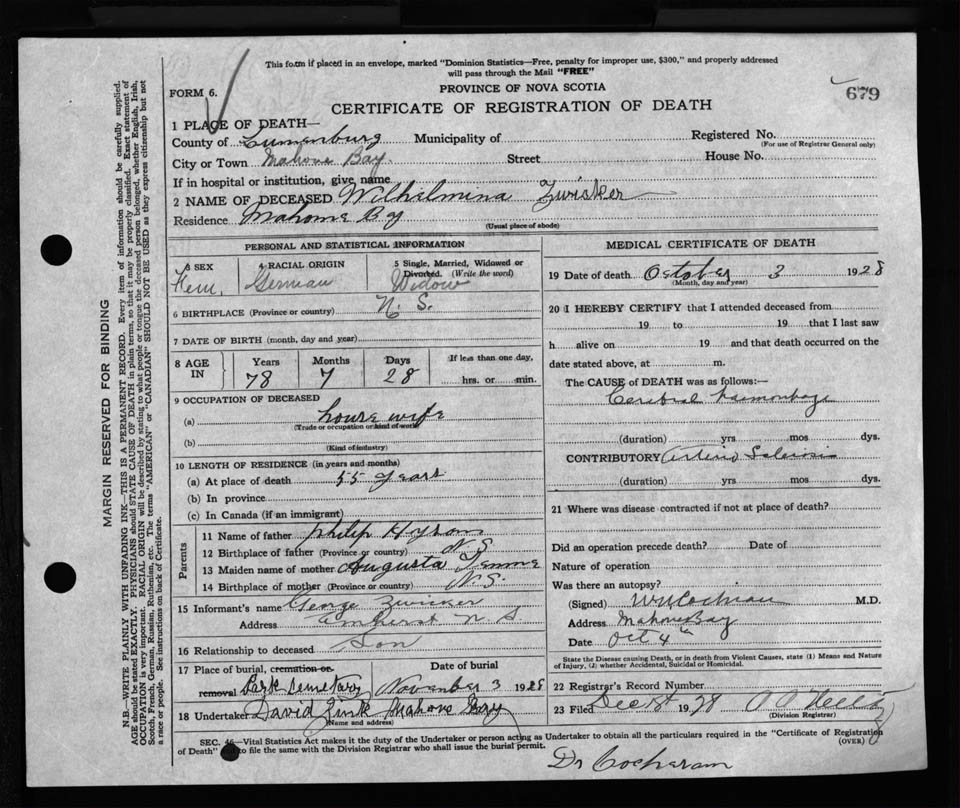 This form if placed in an envelope, marked "Dominion Statistics—Free, penalty for improper use, $300," and properly addressed
will pass through the Mail "FREE"
PROVINCE OF NOVA SCOTIA
679
FORM 6.
CERTIFICATE OF REGISTRATION OF DEATH
1 PLACE OF DEATH—
County of Lunenburg Municipality of Registered No.
(For use of Registrar General only)
City or Town Mahone Bay Street House No.
If in hospital or institution, give name
2 NAME OF DECEASED Wilhelmina Zwicker
Residence Mahone Bay
(Usual place of abode)
PERSONAL AND STATISTICAL INFORMATION
3 SEX 4 RACIAL ORIGIN 5 Single, Married, Widowed or
Divorced. (Write the word)
Fem. German Widow
6 BIRTHPLACE (Province or country) N. S.
7 DATE OF BIRTH (month, day and year)
8 AGE IN Years Months Days If less than one day,
78 7 28 hrs. or min.
9 OCCUPATION OF DECEASED
(a) house wife
(Trade or occupation or kind of work)
(b)
(Kind of industry)
10 LENGTH OF RESIDENCE (in years and months)
(a) At place of death 55 years
(b) In province
(c) In Canada (if an immigrant)
Parents
11 Name of father Philip Hyson
12 Birthplace of father (Province or country) N S
13 Maiden name of mother Augusta
14 Birthplace of mother (Province or country) N.S.
15 Informant's name George Zwicker
Address Amherst N. S.
16 Relationship to deceased Son
17 Place of burial, cremation or Date of burial
removal Park Cemetary November 3 1928
18 Undertaker David Zink Mahone Bay
(Name and address)
MEDICAL CERTIFICATE OF DEATH
19 Date of death October 3 1928
(Month, day and year)
20 I HEREBY CERTIFY that I attended deceased from
19 to 19 that I last saw
h alive on 19 and that death occurred on the
date stated above, at m.
The CAUSE of DEATH was as follows:—
Cerebral haemorrhage
(duration) yrs mos dys.
CONTRIBUTORY Arterio Sclerosis
(duration) yrs mos dys.
21 Where was disease contracted if not at place of death?
Did an operation precede death? Date of
Nature of operation
Was there an autopsy?
(Signed) W N Cochran M.D.
Address Mahone Bay
Date Oct 4th
State the Disease causing Death, or in death from Violent Causes, state (1) Means and Nature
of Injury, (2) whether Accidental, Suicidal or Homicidal.
22 Registrar's Record Number
23 Filed Dec 8th 1928
(Division Registrar)
SEC. 46—Vital Statistics Act makes it the duty of the Undertaker or person acting as Undertaker to obtain all the particulars required in the "Certificate of Registration
of Death" and to file the same with the Division Registrar who shall issue the burial permit. (OVER)
Dr Cocheram
MARGIN RESERVED FOR BINDING
N.B.—WRITE PLAINLY WITH UNFADING INK—THIS IS A PERMANENT RECORD. Every item of information should be carefully supplied.
AGE should be stated EXACTLY. PHYSICIANS should STATE CAUSE OF DEATH in plain terms, so that it may be properly classified. Exact statement of
OCCUPATION is very important. RACIAL ORIGIN will be described by stating to what people or tongue the deceased person belonged, whether English, Irish,
Scotch, French, German, Russian, Ruthenian, etc. The terms "AMERICAN" or "CANADIAN" SHOULD NOT BE USED as they express citizenship but not
a race or people. See instructions on back of Certificate.